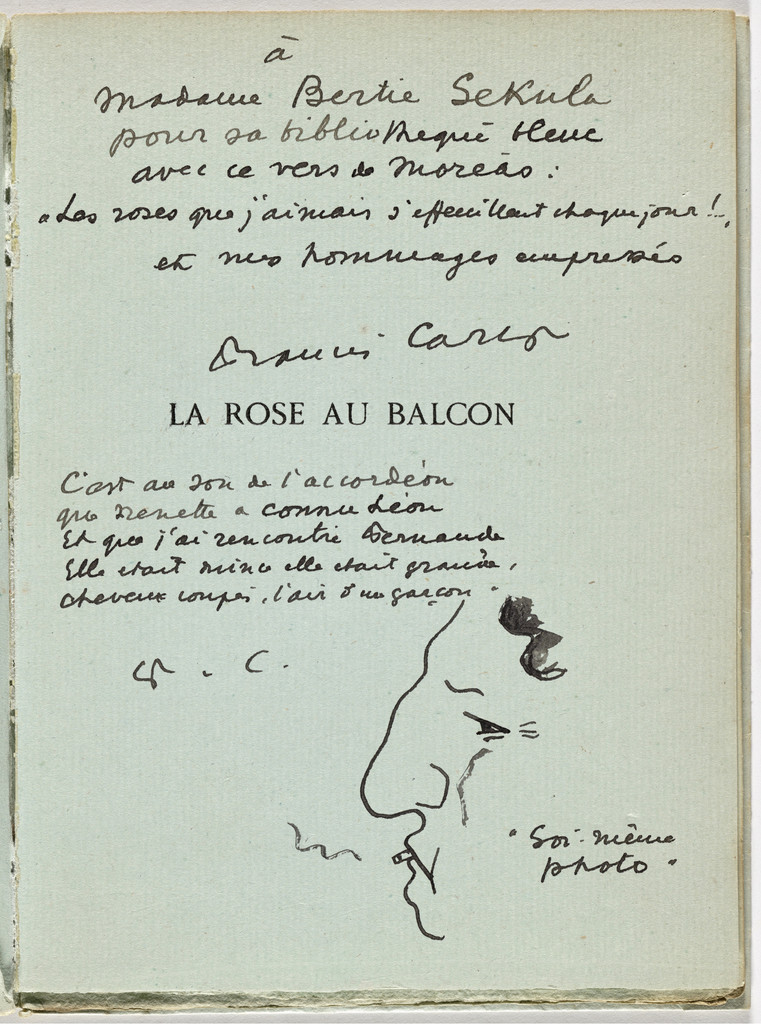 à
Madame Bertie Sekula
pour sa bibliothèque bleue
avec ce vers de Moréas :
"Les roses que j'aimais s'effeuillent chaque jour !"
et mes hommages empressés
Francis Carco
LA ROSE AU BALCON
C'est au son de l'accordéon
que Nenette a connu Léon
Et que j'ai rencontré Fernande
Elle était mince elle était grande,
cheveux coupés, l'air d'un garçon.
F. C.
"Soi-même
photo"